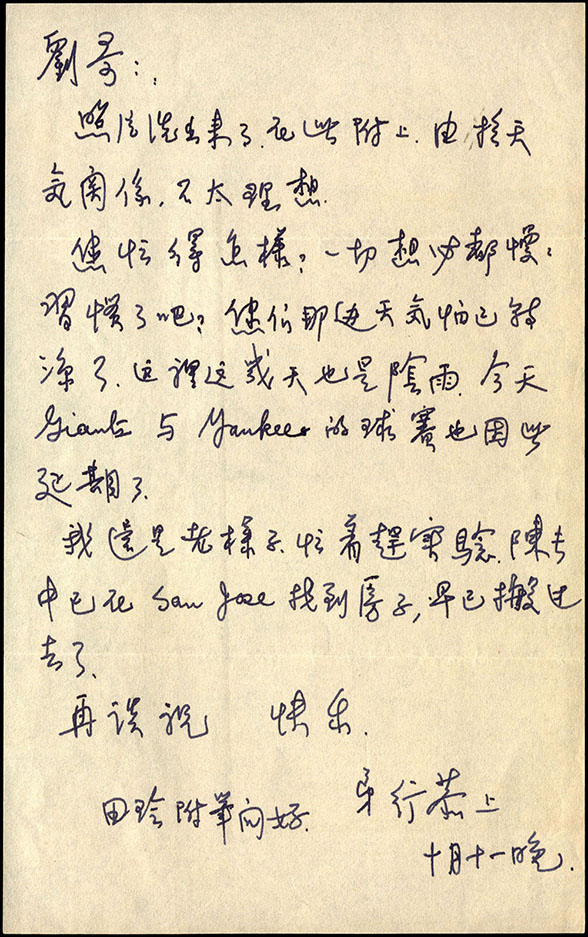 劉哥：
照片洗出来了.在此附上.由於天
気関係,不太理想.
您忙得怎樣?一切想必都慢慢
習慣了吧?您们那边天気怕已轉
凉了.这裡这幾天也是陰雨.今天
Giants 与 Yankees 的球賽也因此
延期了.
我還是老樣子.忙着趕實驗.陳去
中已在 San Jose 找到房子,早已搬过
去了.
再谈祝 快乐.
弟行恭上
田玲附筆问好.
十月十一晚.